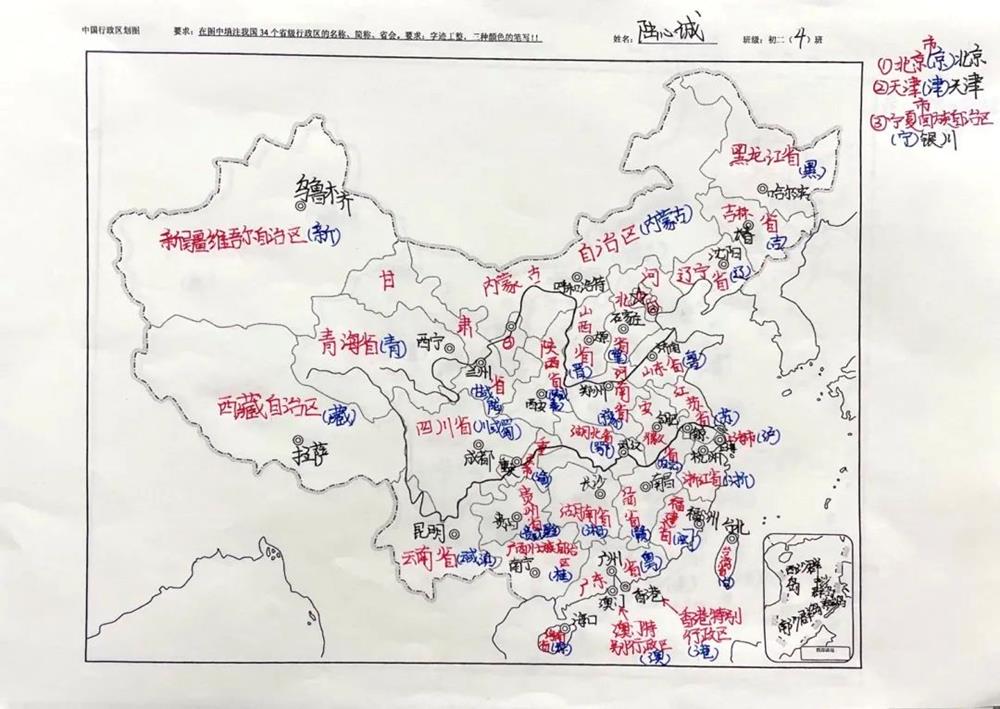 中国行政区划图
要求：在图中填注我国34个省级行政区的名称、简称、省会。要求：字迹工整，三种颜色的笔写!!
姓名：陆心诚
班级：初二（4）班
①北京市(京)北京
②天津市(津)天津
③宁夏回族自治区
(宁)银川
黑龙江省
(黑)
哈尔滨
吉林省
(吉)
长春
沈阳
辽宁省
(辽)
乌鲁木齐
新疆维吾尔自治区(新)
内蒙古自治区(内蒙古)
呼和浩特
甘肃省
兰州
(甘或陇)
青海省(青)
西宁
西藏自治区(藏)
拉萨
河北省
(冀)
石家庄
山西省
(晋)
太原
陕西省
西安
③
济南
山东省(鲁)
郑州
河南省
(豫)
江苏省(苏)
南京
安徽省
合肥
上海市(沪)
上海
四川省(川或蜀)
成都
湖北省
(鄂)
武汉
杭州
浙江省(浙)
重庆
(渝)
长沙
湖南省
(湘)
南昌
(赣)
贵州省
贵阳
福建省
(闽)
福州
台北
台湾省
(台)
昆明
云南省(云或滇)
广西壮族自治区
南宁
(桂)
广州
广东省(粤)
澳门
香港
海口
海南省
(琼)
澳门特别行政区
(澳)
香港特别行政区
(港)
西沙群岛
南沙群岛